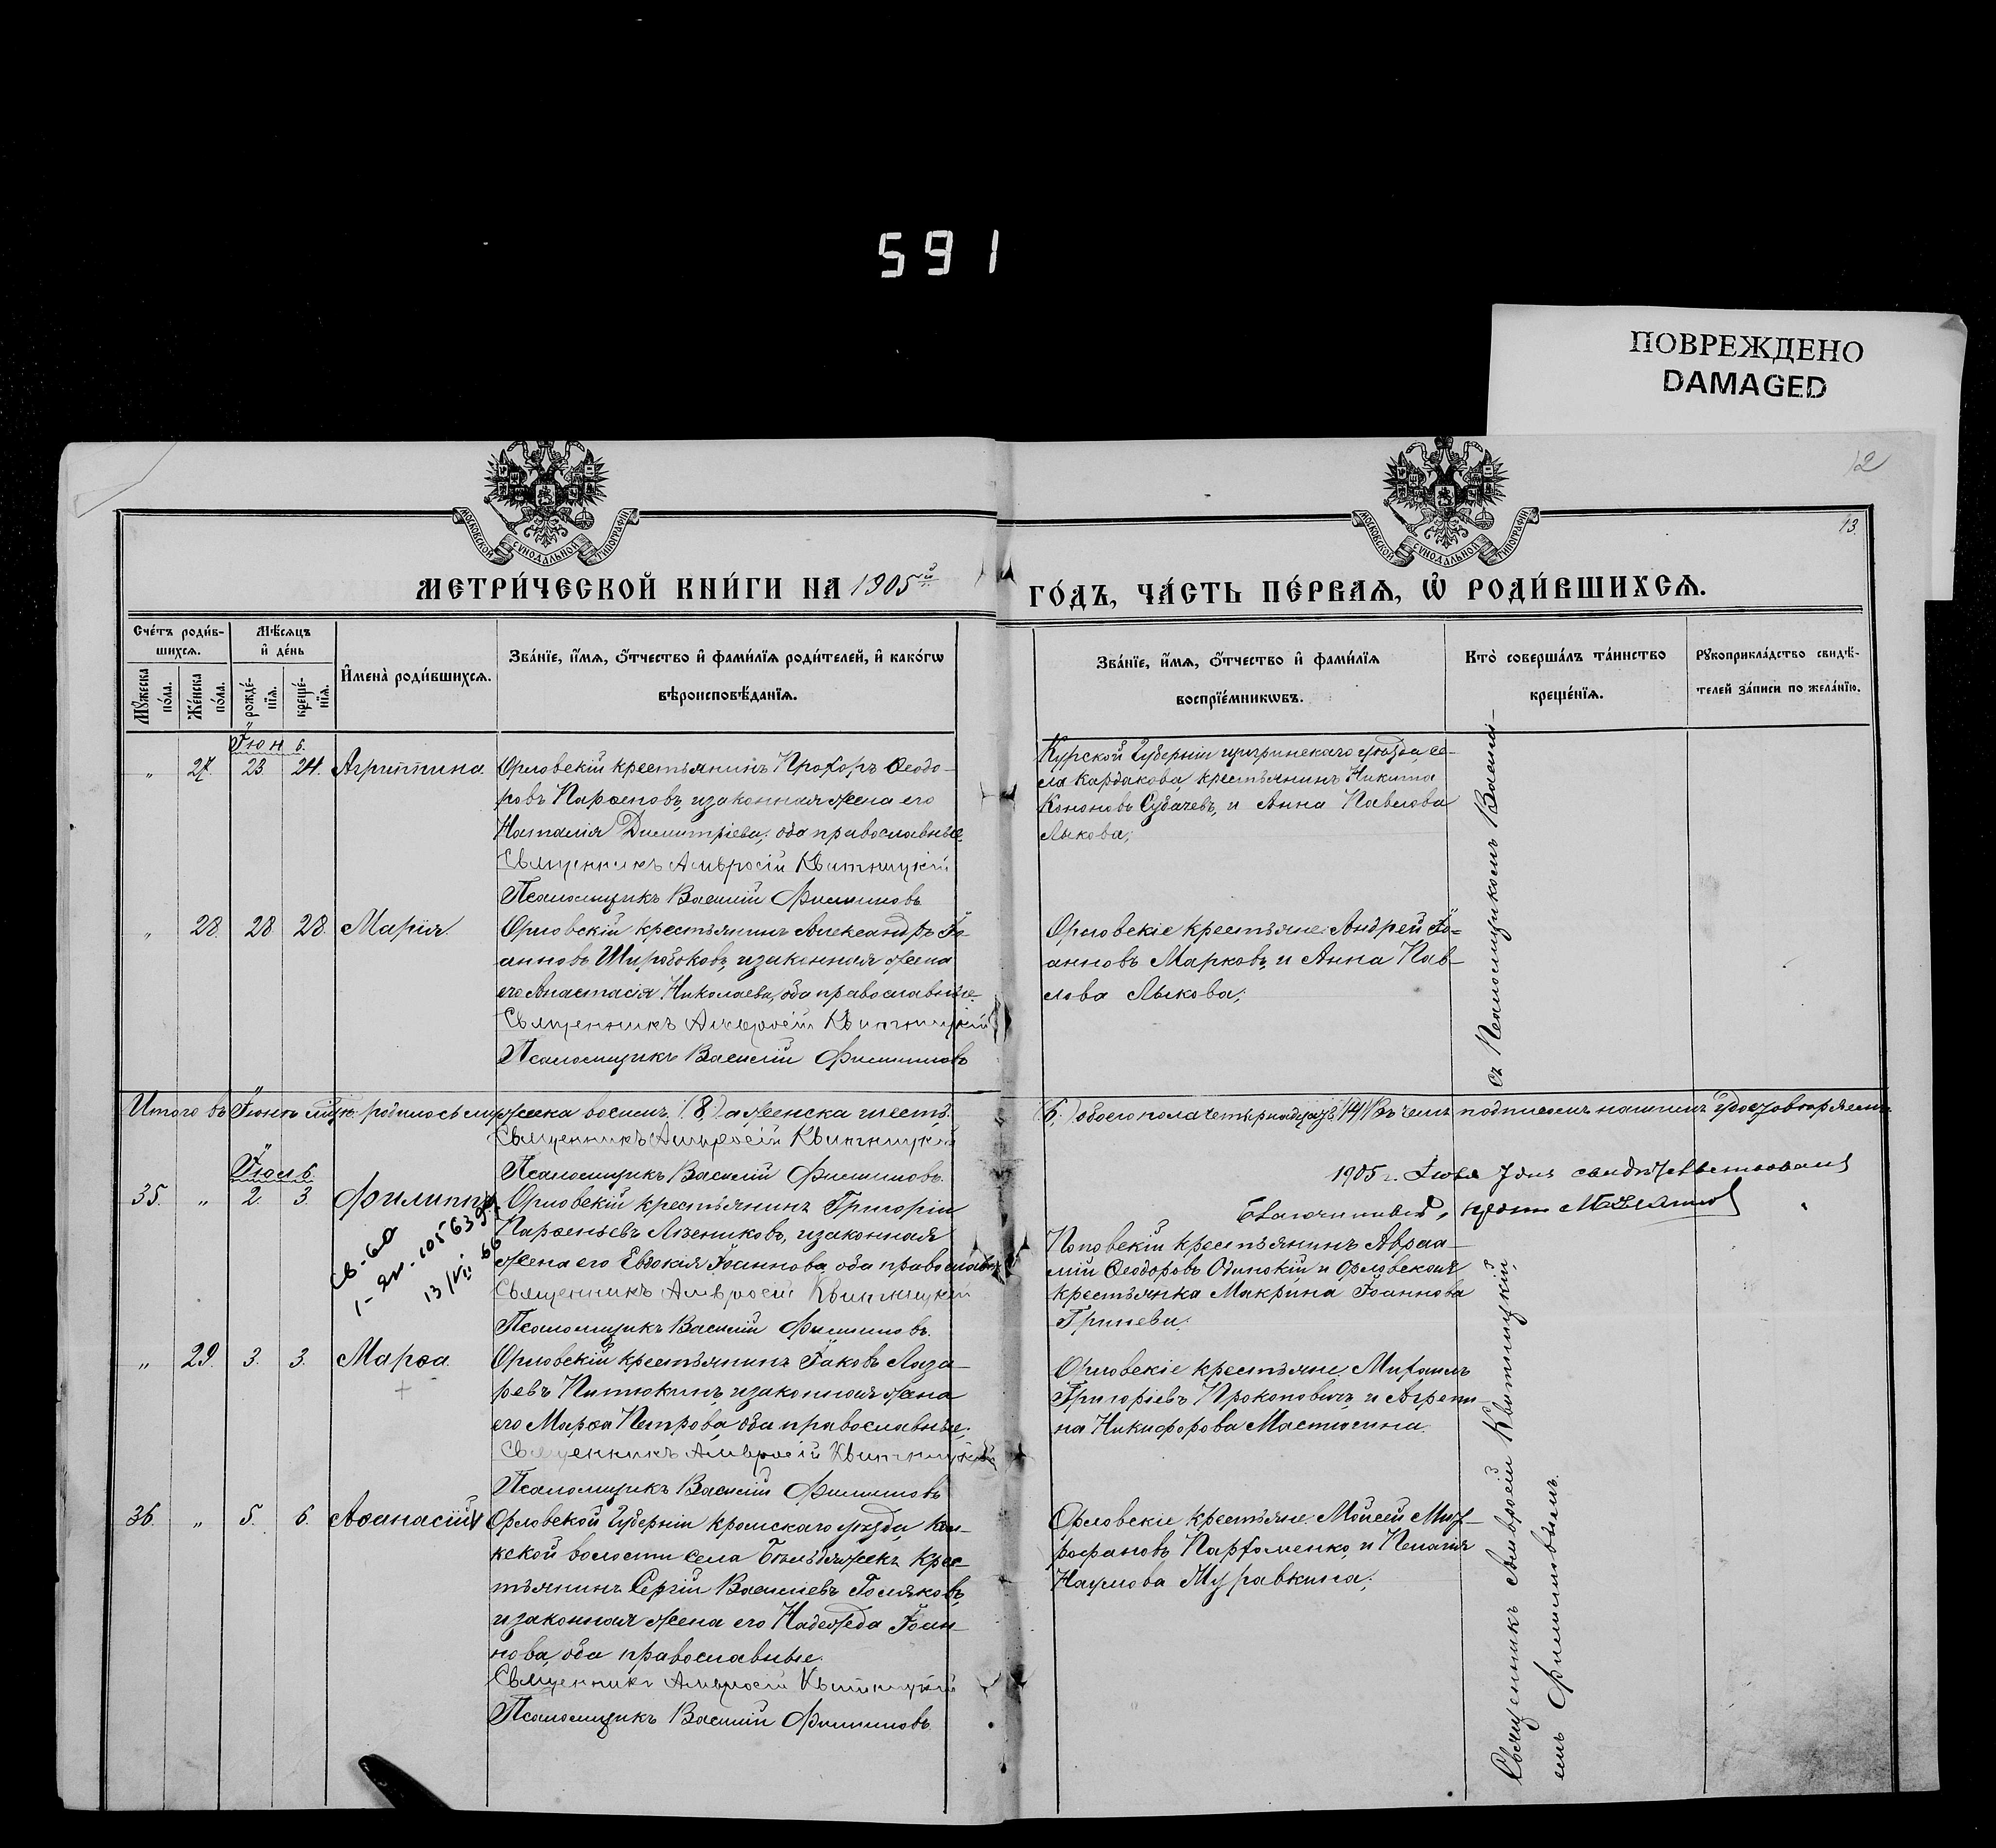 591
ПОВРЕЖДЕНО
DAMAGED
12
13.
МОСКОВСКОЙ СѴНОДАЛЬНОЙ ТИПОГРАФІИ
МОСКОВСКОЙ СѴНОДАЛЬНОЙ ТИПОГРАФІИ
МЕТРИ́ЧЕСКОЙ КНИ́ГИ НА 1905й
ГО́ДЪ, ЧА́СТЬ ПЕ́РВАѦ, Ѡ҆ РОДИ́ВШИХСѦ.
Сче́тъ роди́в-
шихсѧ.
Мꙋжеска по́ла.
Же́нска по́ла.
Мѣ́сѧцъ
и҆ де́нь
рожде́-
нїѧ.
креще́-
нїѧ.
И҆мена̀ роди́вшихсѧ.
Зва́нїе, и҆́мѧ, ѻ҆́тчество и҆ фами́лїѧ роди́телей, и҆ како́гѡ
вѣроисповѣ́данїѧ.
Зва́нїе, и҆́мѧ, ѻ҆́тчество и҆ фами́лїѧ
воспрїе́мникѡвъ.
Кто̀ соверша́лъ та́инство
креще́нїѧ.
Рꙋкоприкла́дство свидѣ́-
телей за́писи по жела́нїю.
Іюнь.
„ 27. 23. 24. Агриппина.
Орловскій крестьянинъ Прохоръ Ѳеодо-
ровъ Парѳеновъ, и законная жена его
Наталія Димитріева, оба православные.
Священникъ Амвросій Квитницкій
Псаломщикъ Василій Филимоновъ
Курской Губерніи уѣзда, се-
ла Кардакова, крестьянинъ Никита
Кононовъ Субачевъ, и Анна Павлова
Лыкова.
„ 28. 28. 28. Марія.
Орловскій крестьянинъ Александръ Іо-
анновъ Широбоковъ, и законная жена
его Анастасія Николаева, оба православные.
Священникъ Амвросій Квитницкій
Псаломщикъ Василій Филимоновъ
Орловскіе крестьяне: Андрей Іо-
анновъ Марковъ, и Анна Пав-
лова Лыкова.
Итого въ Іюнѣ мцѣ родилось мужеска восемь (8) а женска шесть
(6,) обоего пола четырнадцать (14) Въ чемъ подписомъ нашимъ удостовѣряемъ
Священникъ Амвросій Квитницкій
Псаломщикъ Василій Филимоновъ
1905 г. Іюля 7 дня свидѣтельствовалъ
Благочинный,
Іюль.
35. „ 2. 3. Филиппъ.
Св. 60
13/VII 66
Орловскій крестьянинъ Григорій
Парѳеньевъ и законная
жена его Евдокія Іоаннова, оба православн.
Священникъ Амвросій Квитницкій
Псаломщикъ Василій Филимоновъ.
Поповскій крестьянинъ Авраа-
мій Ѳеодоровъ Одинокій и Орловская
крестьянка Макрина Іоаннова
Гринева.
„ 29. 3. 3. Марѳа.
Орловскій крестьянинъ Іаковъ Лаза-
ревъ Питюкинъ, и законная жена
его Марѳа Петрова, оба православные.
Священникъ Амвросій Квитницкій
Псаломщикъ Василій Филимоновъ
Орловскіе крестьяне Михаилъ
Григоріевъ Прокоповичъ и Агрепи-
на Никифорова Мастюгина.
36. „ 5. 6. Аѳанасій
Орловской Губерніи Кромскаго уѣзда,
волости села крес-
тьянинъ Сергій Васильевъ Голяковъ,
и законная жена его Надежда Іоан-
нова, оба православные.
Священникъ Амвросій Квитницкій
Псаломщикъ Василій Филимоновъ
Орловскіе крестьяне Мойсей Мит-
рофановъ Пархоменко, и Пелагія
Наумова Муравкина.
Священникъ Амвросій Квитницкій съ Псаломщикомъ Васили-
емъ Филимоновымъ.